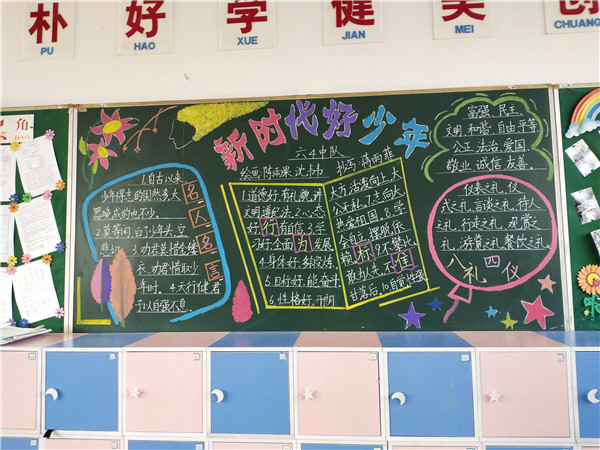 朴 好 学 健 美
PU HAO XUE JIAN MEI CHUANG
角
新时代好少年
六4中队
1.自古以来
少年得志的固然多大
器晚成的也不少。
2.莫等闲,白了少年头,空
悲切 3.劝君莫惜金缕
衣,劝君惜取少
年时。4.天行健,君
子以自强不息。
名人名言
1.道德好:有礼貌,讲
文明遵纪法,2.心态
好:行有信 3.学
习好:全面为发展
4.身体好:多锻炼,
5.目标好:能奋斗
6.性格好:开朗
大方活泼向上,大
公无私,7.志向大:
热爱祖国,8.学
会自立:摆脱依
赖 标 9.不攀比:
敢为人先不准
甘落后,10.自觉性强
行为标准
富强、民主、
文明、和谐、自由、平等、
公正、法治、爱国、
敬业、诚信、友善。
仪表之礼、仪
式之礼、言谈之礼、待人
之礼、行走之礼、观赏之
礼、游览之礼、餐饮之礼。
八礼四仪